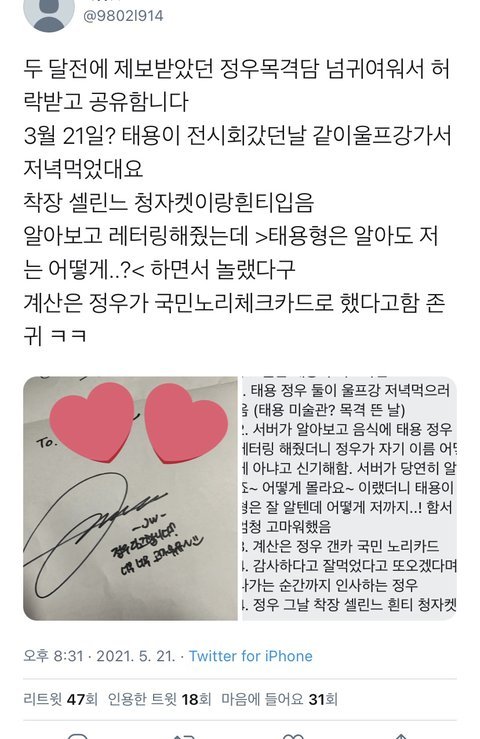 @9802l914
두 달전에 제보받았던 정우목격담 넘귀여워서 허
락받고 공유함니다
3월 21일? 태용이 전시회갔던날 같이울프강가서
저녁먹었대요
착장 셀린느 청자켓이랑흰티입음
알아보고 레터링해줬는데 >태용형은 알아도 저
는 어떻게..?< 하면서 놀랬다구
계산은 정우가 국민노리체크카드로 했다고함 존
귀 ㅋㅋ
To.
-JW-
정우라고합니다!
너무 너무 고마워용
. 태용 정우 둘이 울프강 저녁먹으러
음 (태용 미술관? 목격 뜬 날)
2. 서버가 알아보고 음식에 태용 정우
레터링 해줬더니 정우가 자기 이름 어떻
게 아냐고 신기해함. 서버가 당연히 알
죠~ 어떻게 몰라요~ 이랬더니 태용이
형은 잘 알텐데 어떻게 저까지..! 함서
엄청 고마워했음
3. 계산은 정우 갠카 국민 노리카드
4. 감사하다고 잘먹었다고 또오겠다며
나가는 순간까지 인사하는 정우
4. 정우 그날 착장 셀린느 흰티 청자켓
오후 8:31 · 2021. 5. 21. · Twitter for iPhone
리트윗 47회 인용한 트윗 18회 마음에 들어요 31회